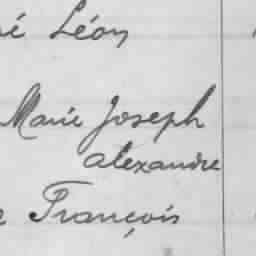 é Léon
Marie Joseph
alexandre
François